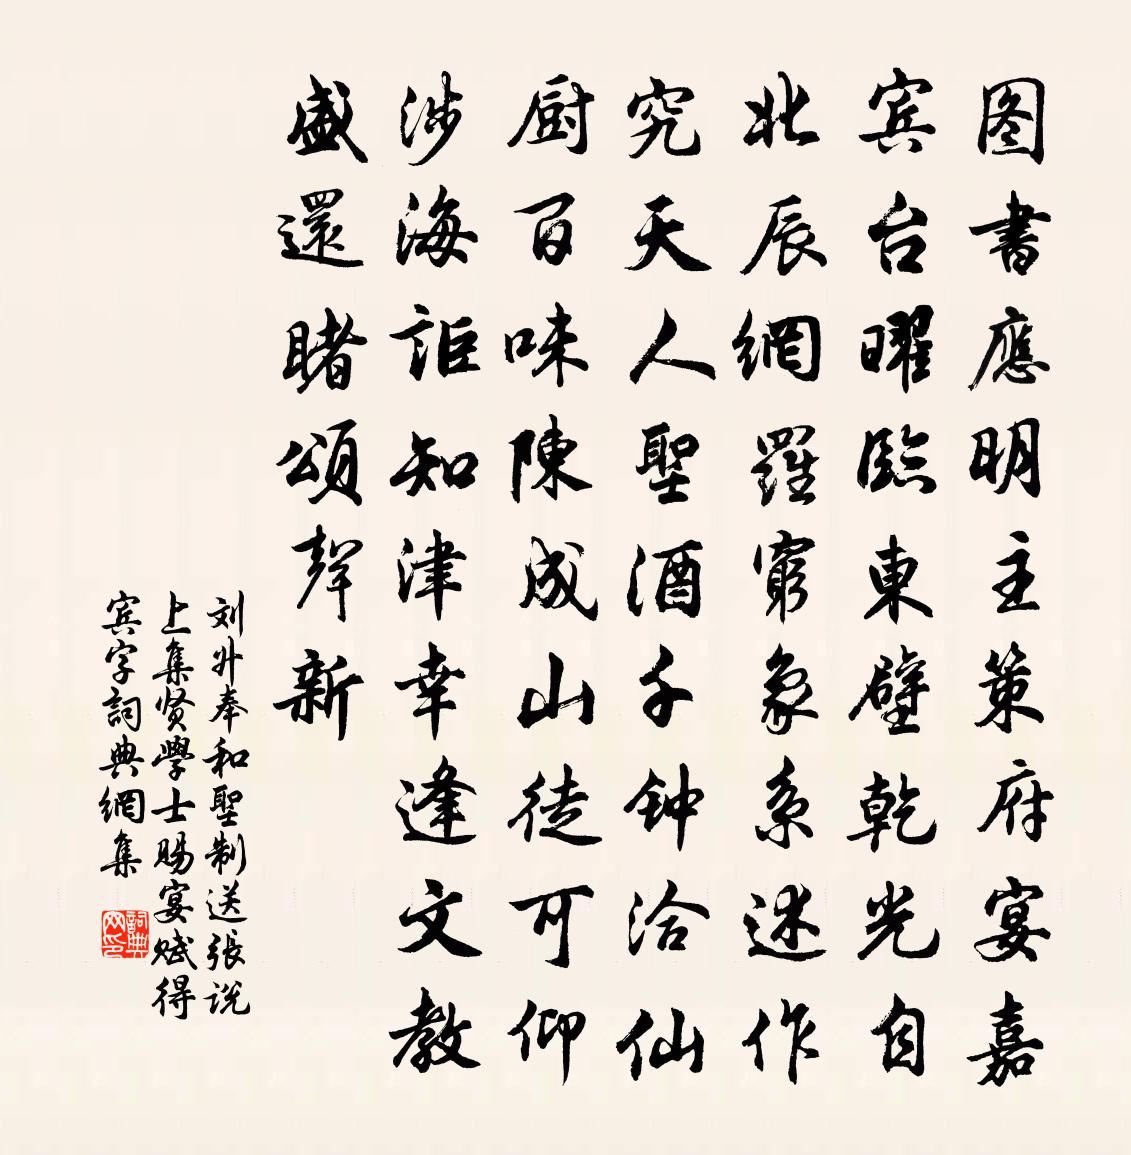 图書應明主策府宴嘉
宾台曜臨東壁乾光自
北辰網羅窮象系述作
究天人聖酒千钟洽仙
厨百味陳成山徒可仰
涉海詎知津幸逢文教
盛還睹頌聲新
刘升奉和聖制送張说
上集贤學士賜宴赋得
宾字詞典網集
詞典